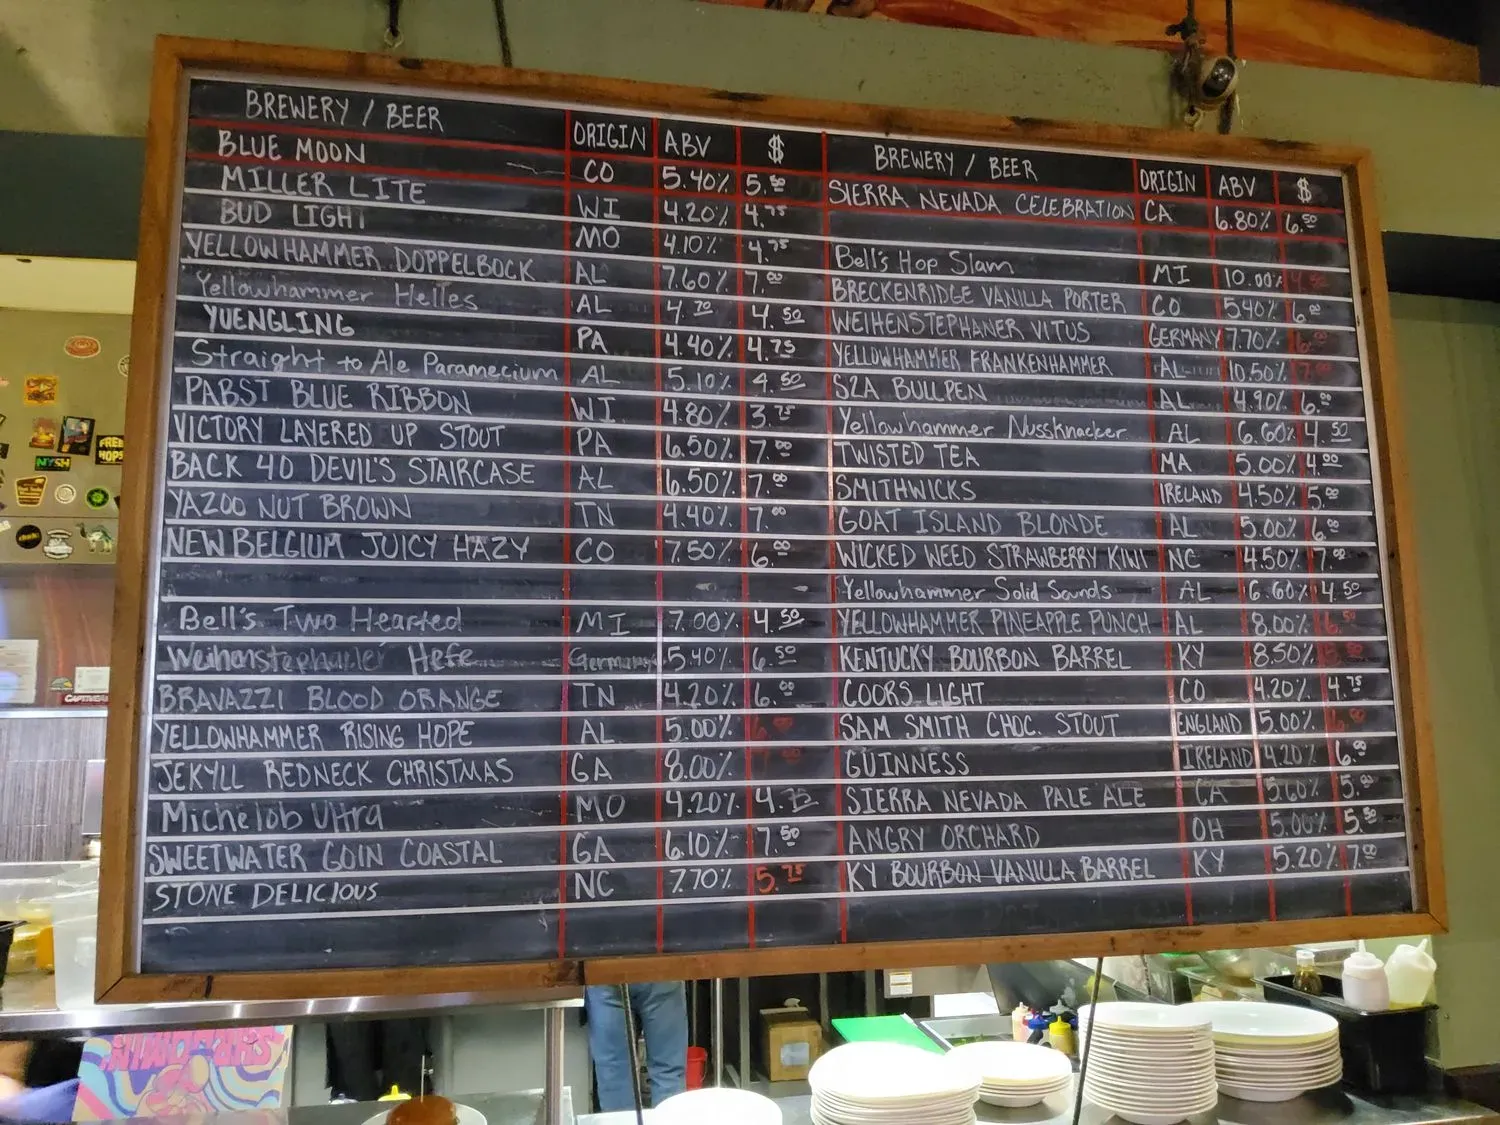 BREWERY / BEER ORIGIN ABV $
BLUE MOON CO 5.40% 5.50
MILLER LITE WI 4.20% 4.75
BUD LIGHT MO 4.10% 4.75
YELLOWHAMMER DOPPELBOCK AL 7.60% 7.00
Yellowhammer Helles AL 4.70 4.50
YUENGLING PA 4.40% 4.75
Straight to Ale Paramecium AL 5.10% 4.50
PABST BLUE RIBBON WI 4.80% 3.75
VICTORY LAYERED UP STOUT PA 6.50% 7.00
BACK 40 DEVIL'S STAIRCASE AL 6.50% 7.00
YAZOO NUT BROWN TN 4.40% 7.00
NEW BELGIUM JUICY HAZY CO 7.50% 6.00
Bell's Two Hearted MI 7.00% 4.50
Weihenstephaner Hefe Germany 5.40% 6.50
BRAVAZZI BLOOD ORANGE TN 4.20% 6.00
YELLOWHAMMER RISING HOPE AL 5.00%
JEKYLL REDNECK CHRISTMAS GA 8.00%
Michelob Ultra MO 4.20% 4.75
SWEETWATER GOIN COASTAL GA 6.10% 7.50
STONE DELICIOUS NC 7.70% 5.75
BREWERY / BEER ORIGIN ABV $
SIERRA NEVADA CELEBRATION CA 6.80% 6.50
Bell's Hop Slam MI 10.00%
BRECKENRIDGE VANILLA PORTER CO 5.40% 6.00
WEIHENSTEPHANER VITUS GERMANY 7.70%
YELLOWHAMMER FRANKENHAMMER AL 10.50%
S2A BULLPEN AL 4.90% 6.00
Yellowhammer Nussknacker AL 6.60% 4.50
TWISTED TEA MA 5.00% 4.00
SMITHWICKS IRELAND 4.50% 5.00
GOAT ISLAND BLONDE AL 5.00% 6.00
WICKED WEED STRAWBERRY KIWI NC 4.50% 7.00
Yellowhammer Solid Sounds AL 6.60% 4.50
YELLOWHAMMER PINEAPPLE PUNCH AL 8.00%
KENTUCKY BOURBON BARREL KY 8.50%
COORS LIGHT CO 4.20% 4.75
SAM SMITH CHOC. STOUT ENGLAND 5.00%
GUINNESS IRELAND 4.20% 6.00
SIERRA NEVADA PALE ALE CA 5.60% 5.00
ANGRY ORCHARD OH 5.00% 5.50
KY BOURBON VANILLA BARREL KY 5.20% 7.00
FREE
HOPS
NYSH